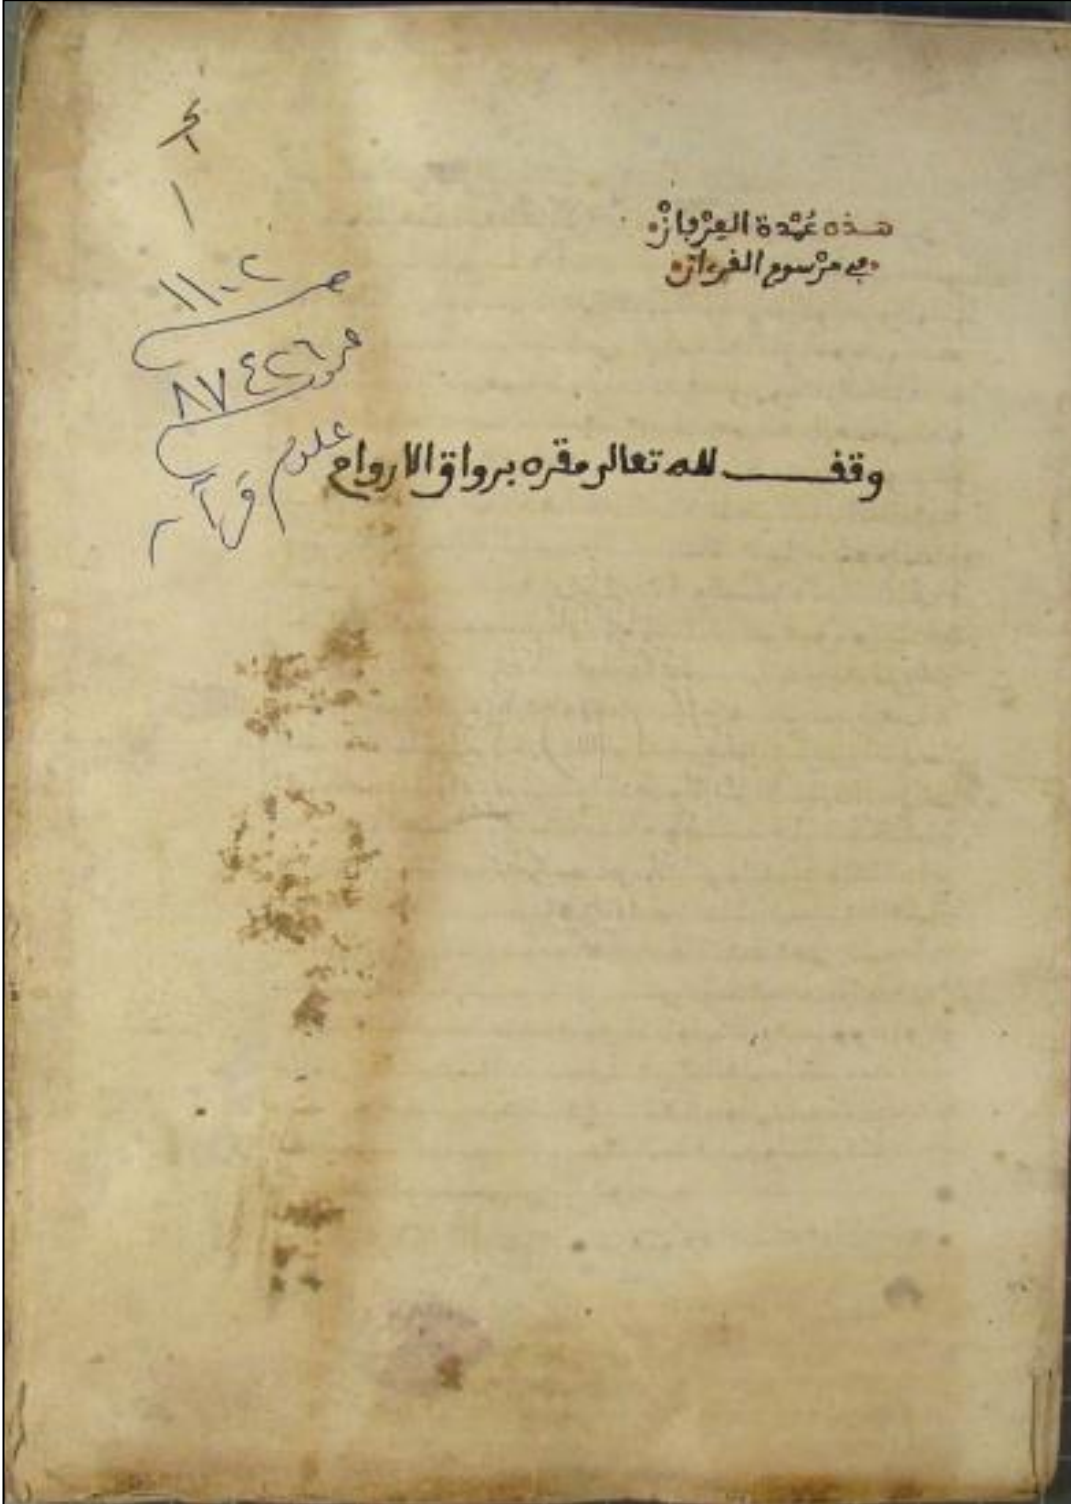 هذه عُمْدة العِرْفانْ
في مرْسوم القرءانْ
وقف لله تعالى مقره برواق الاروام
١
١١٠٢
٨٧٤٢٦
علوم قرآن